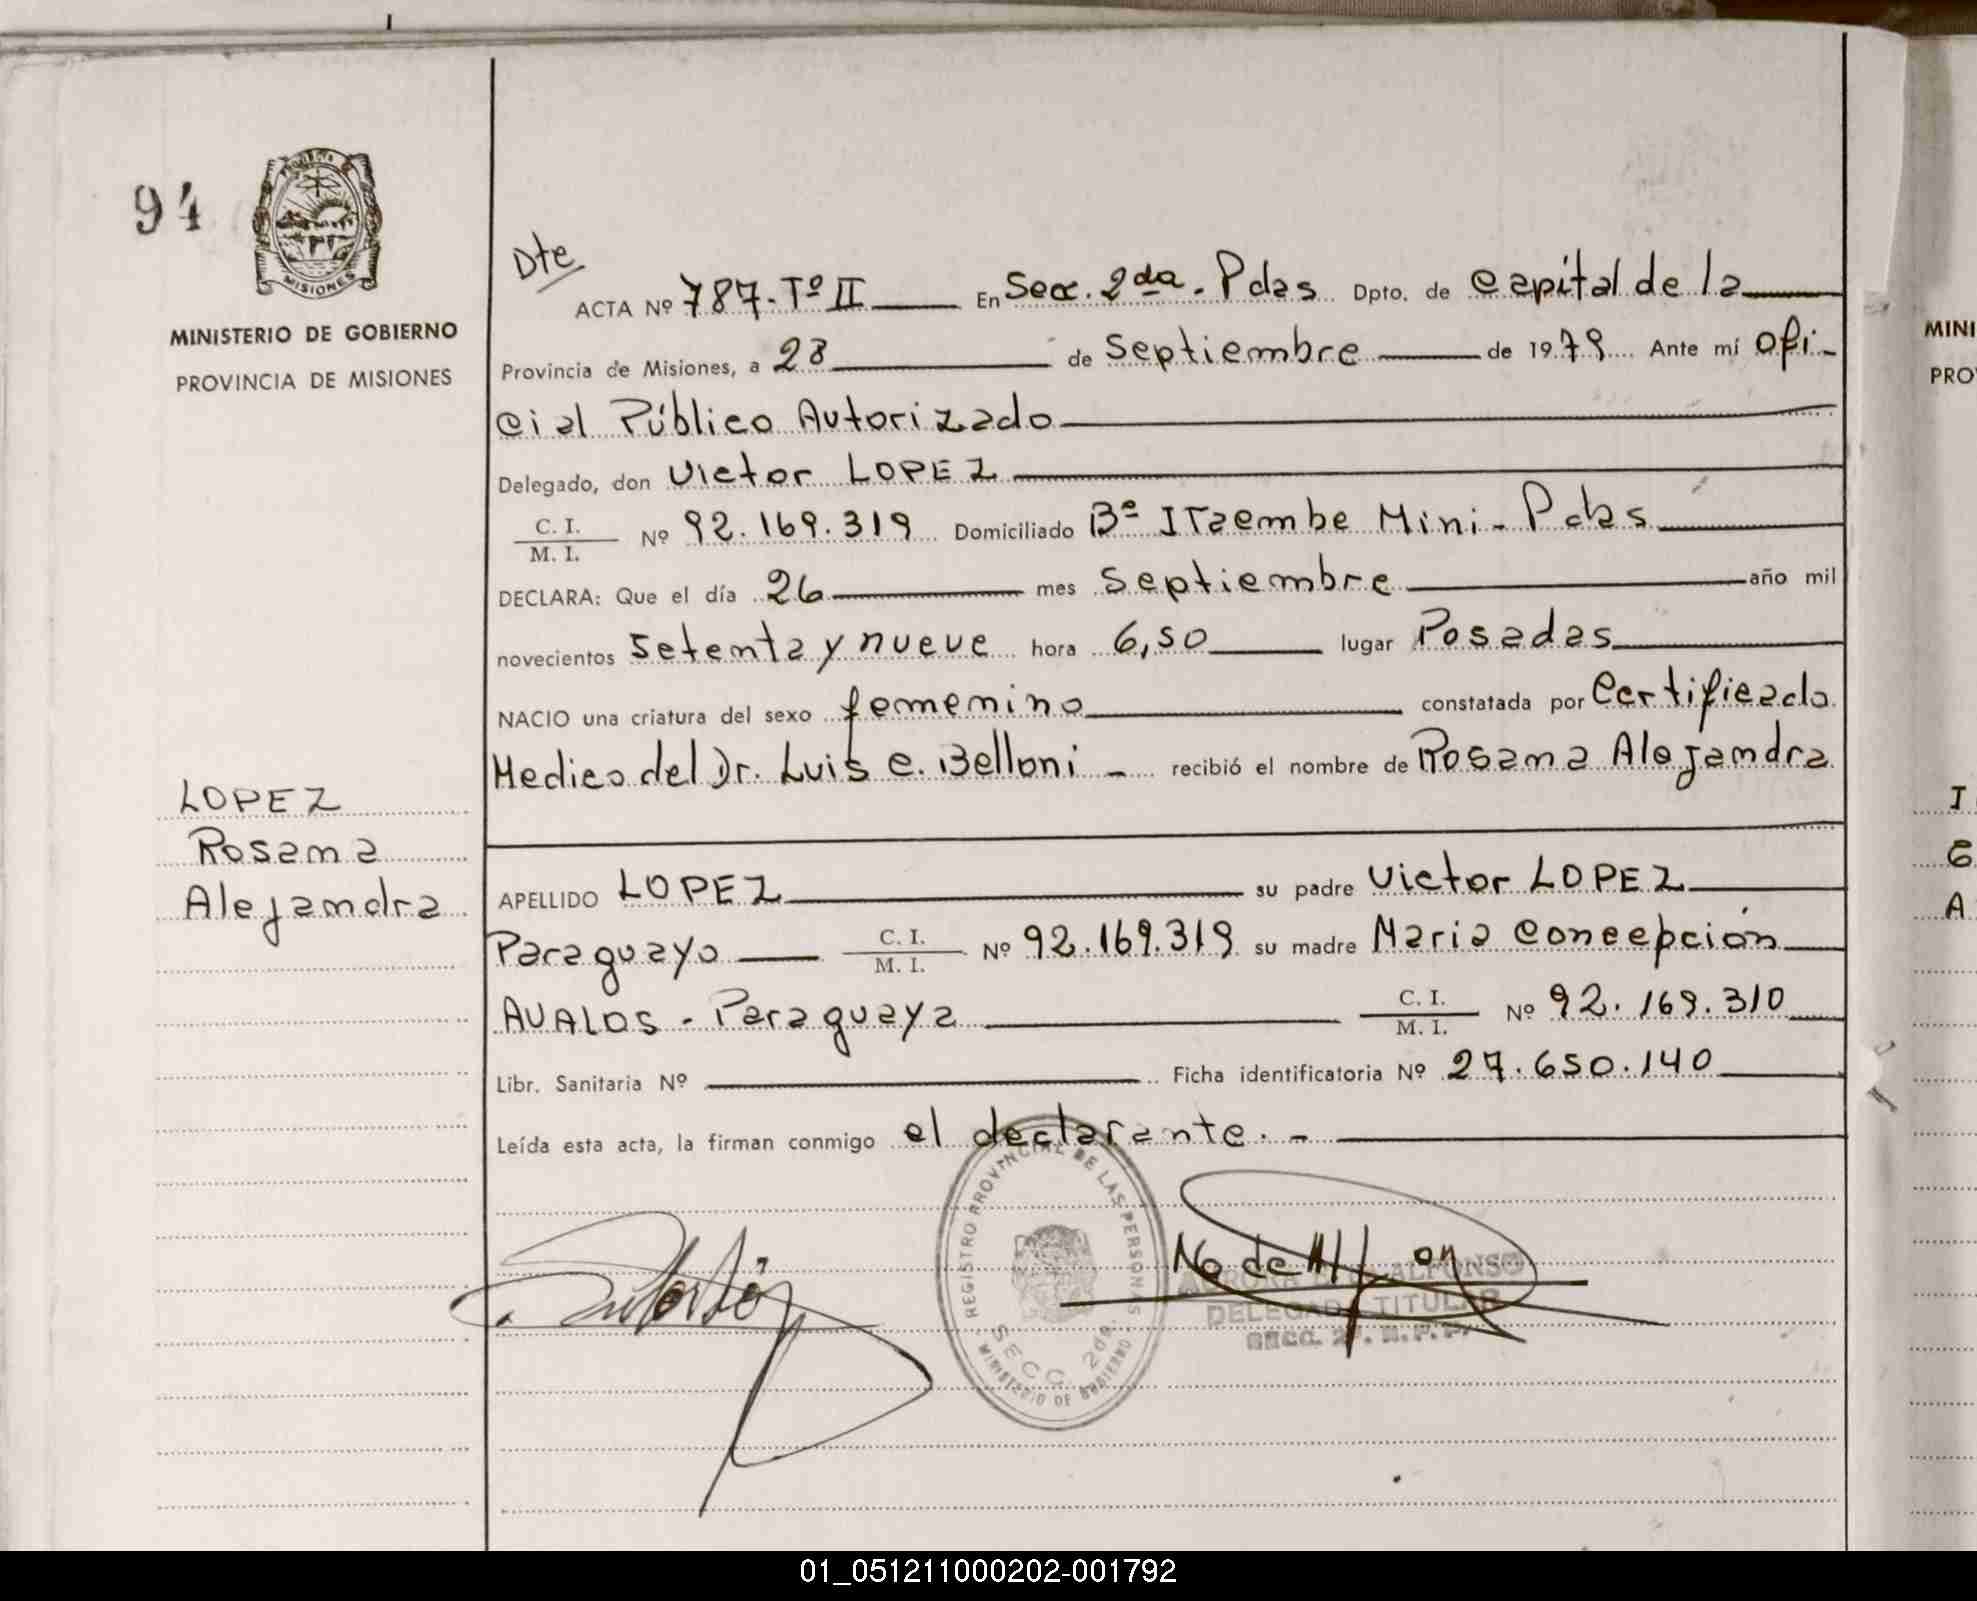 94
PROVINCIA DE
MISIONES
MINISTERIO DE GOBIERNO
PROVINCIA DE MISIONES
LOPEZ
Rosana
Alejandra
Dte
ACTA Nº 787-Tº II En Secc. 2da. Pdas Dpto. de Capital de la
Provincia de Misiones, a 28 de Septiembre de 1979 Ante mí Ofi-
cial Público Autorizado
Delegado, don Victor LOPEZ
C. I.
M. I. Nº 92.169.319 Domiciliado Bº ITaembe Mini - Pdas
DECLARA: Que el día 26 mes Septiembre año mil
novecientos setenta y nueve hora 6,50 lugar Posadas
NACIO una criatura del sexo femenino constatada por Certificado
Medico del Dr. Luis C. Belloni - recibió el nombre de Rosana Alejandra
APELLIDO LOPEZ su padre Victor LOPEZ
Paraguayo C. I.
M. I. Nº 92.169.319 su madre Maria Concepción
AVALOS - Paraguaya C. I.
M. I. Nº 92.169.310
Libr. Sanitaria Nº Ficha identificatoria Nº 27.650.140
Leída esta acta, la firman conmigo el declarante. -
REGISTRO PROVINCIAL DE LAS PERSONAS
SECC. 2da.
MINISTERIO DE GOBIERNO
ALFONSO
DELEGADA TITULAR
SECC. 2ª. R. P. P.
MINI
PRO
I
A
01_051211000202-001792